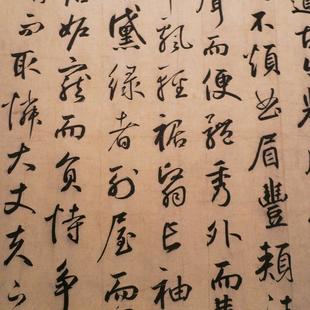 不煩曲眉豐頰
聲而便體秀外而
飄輕裾翳長袖
黛綠者列屋而
妬寵而負恃爭
而取憐大丈夫